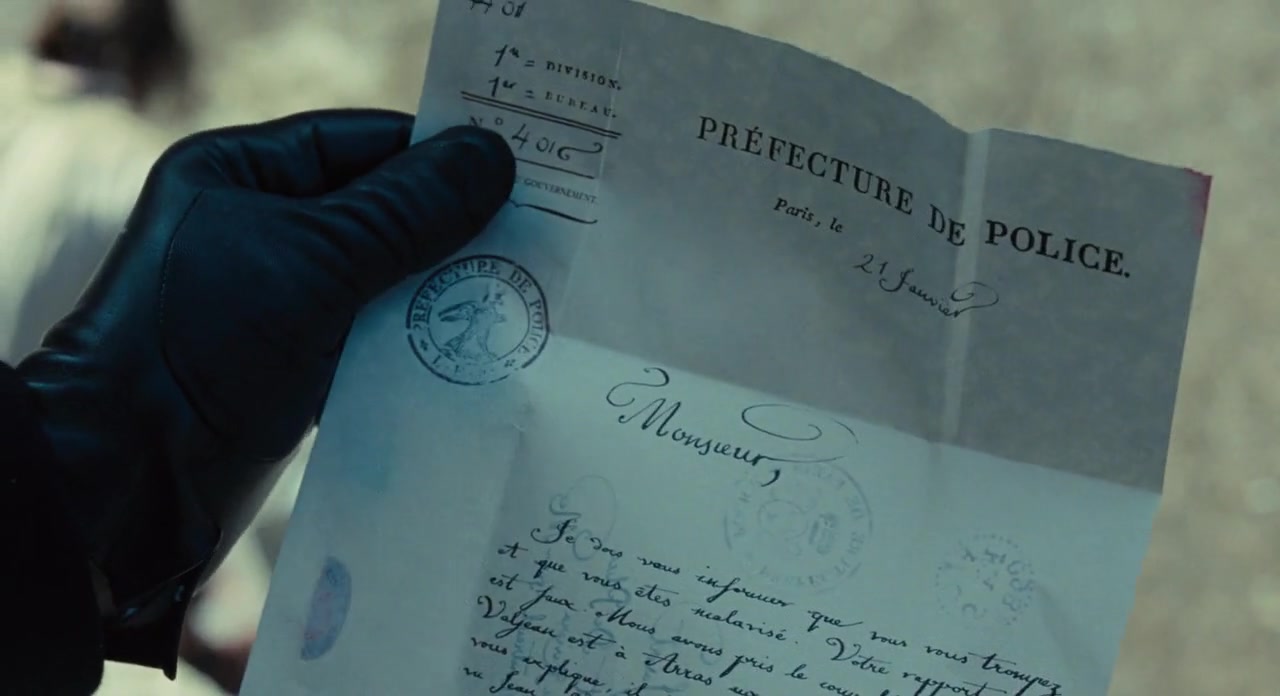 1re = DIVISION.
1er = BUREAU.
Nº 4016
GOUVERNEMENT.
PRÉFECTURE DE POLICE.
Paris, le 21 Janvier
PRÉFECTURE DE POLICE
Monsieur,
Je dois vous informer que vous vous trompez
et que vous êtes malavisé. Votre rapport
est faux. Nous avons pris le
Valjean est à Arras
vous explique, il
Jean